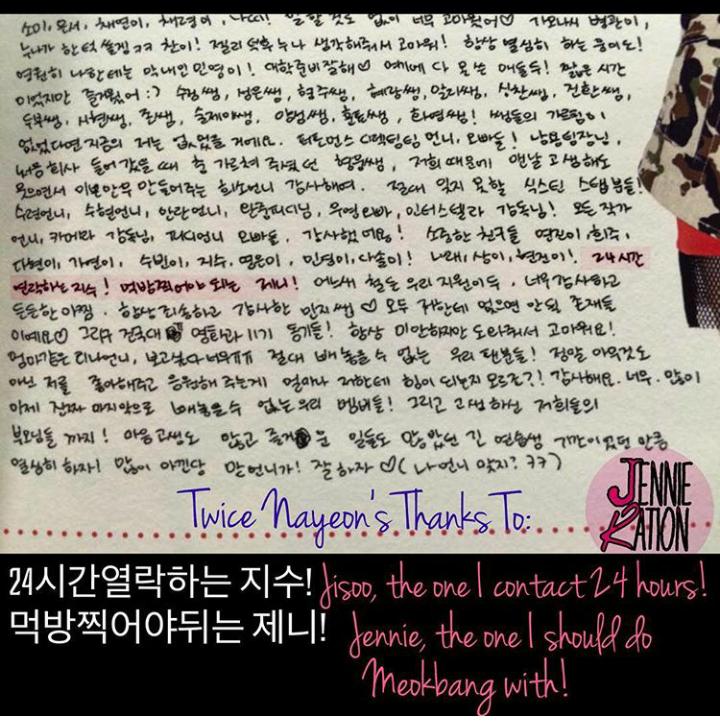 소미, 은서, 채연이, 채령이, 나띠! 말 할것도 없이 너무 고마웠어♡
누나가 한턱 쏠게 ㅋㅋ 찬이! 젤리 덕후 누나 생각해줘서 고마워! 항상 열심히 하는
영원히 나한테는 막내인 민영이! 대학준비잘해♡ 여기에 다 못 쓴 애들두! 짧은 시간
이었지만 즐거웠어 :) 수정쌤, 성은쌤, 현주쌤, 혜랑쌤, 말리쌤, 성찬쌤, 진환쌤,
두부쌤, 시현쌤, 존쌤, 술제이쌤, 쌤들의 가르침이
없었다면 지금의 저는 없었을 거에요. 퍼포먼스 디렉팅팀 언니, 오빠들! 남용팀장님,
회사 들어 갔을 때 춤 가르쳐 주셨던 저희 때문에 맨날 고생해도
웃으면서 이쁜안무 만들어주는 희소언니 감사해여. 절대 잊지 못할 식스틴 스탭분들!
수현언니, 우영오빠, 인터스텔라 감독님! 모든 작가
언니, 카메라 감독님, 피디언니 오빠들, 감사했어용! 소중한 친구들
다현이, 가연이, 수빈이, 지수, 영은이, 민정이, 다솔이! 24시간
연락하는 지수! 먹방찍어야 되는 제니! 어느새 철든 우리 지원이두, 너무감사하고
든든한 아찜. 항상 죄송하고 감사한 민지쌤♡ 모두 저한테 없으면 안될 존재들
이예요♡ 그리구 건국대 영화과 11기 동기들! 항상 미안하지만 도와줘서 고마워요!
엄마같은 리나언니, 보고싶다 너무ㅠㅠ 절대 빼놓을수 없는 우리 팬분들! 정말 아무것도
아닌 저를 좋아해주고 응원해 주는게 얼마나 저한테 힘이 되는지 모르죠?! 감사해요. 너무. 많이
이제 진짜 마지막으로 빼놓을수 없는 우리 멤버들! 그리고 고생하신 저희들의
부모님들 까지! 마음고생도 많고 즐거운 일들도 많았던 긴 연습생 기간이었던 만큼
열심히 하자! 많이 아낀당 맏언니가! 잘 하자 ♡( 나 언니 맞지? ㅋㅋ)
Twice Nayeon's Thanks To:
JENNIE
KATION
24시간열락하는 지수! Jisoo, the one I contact 24 hours!
먹방찍어야뒤는 제니! Jennie, the one I should do
Meokbang with!